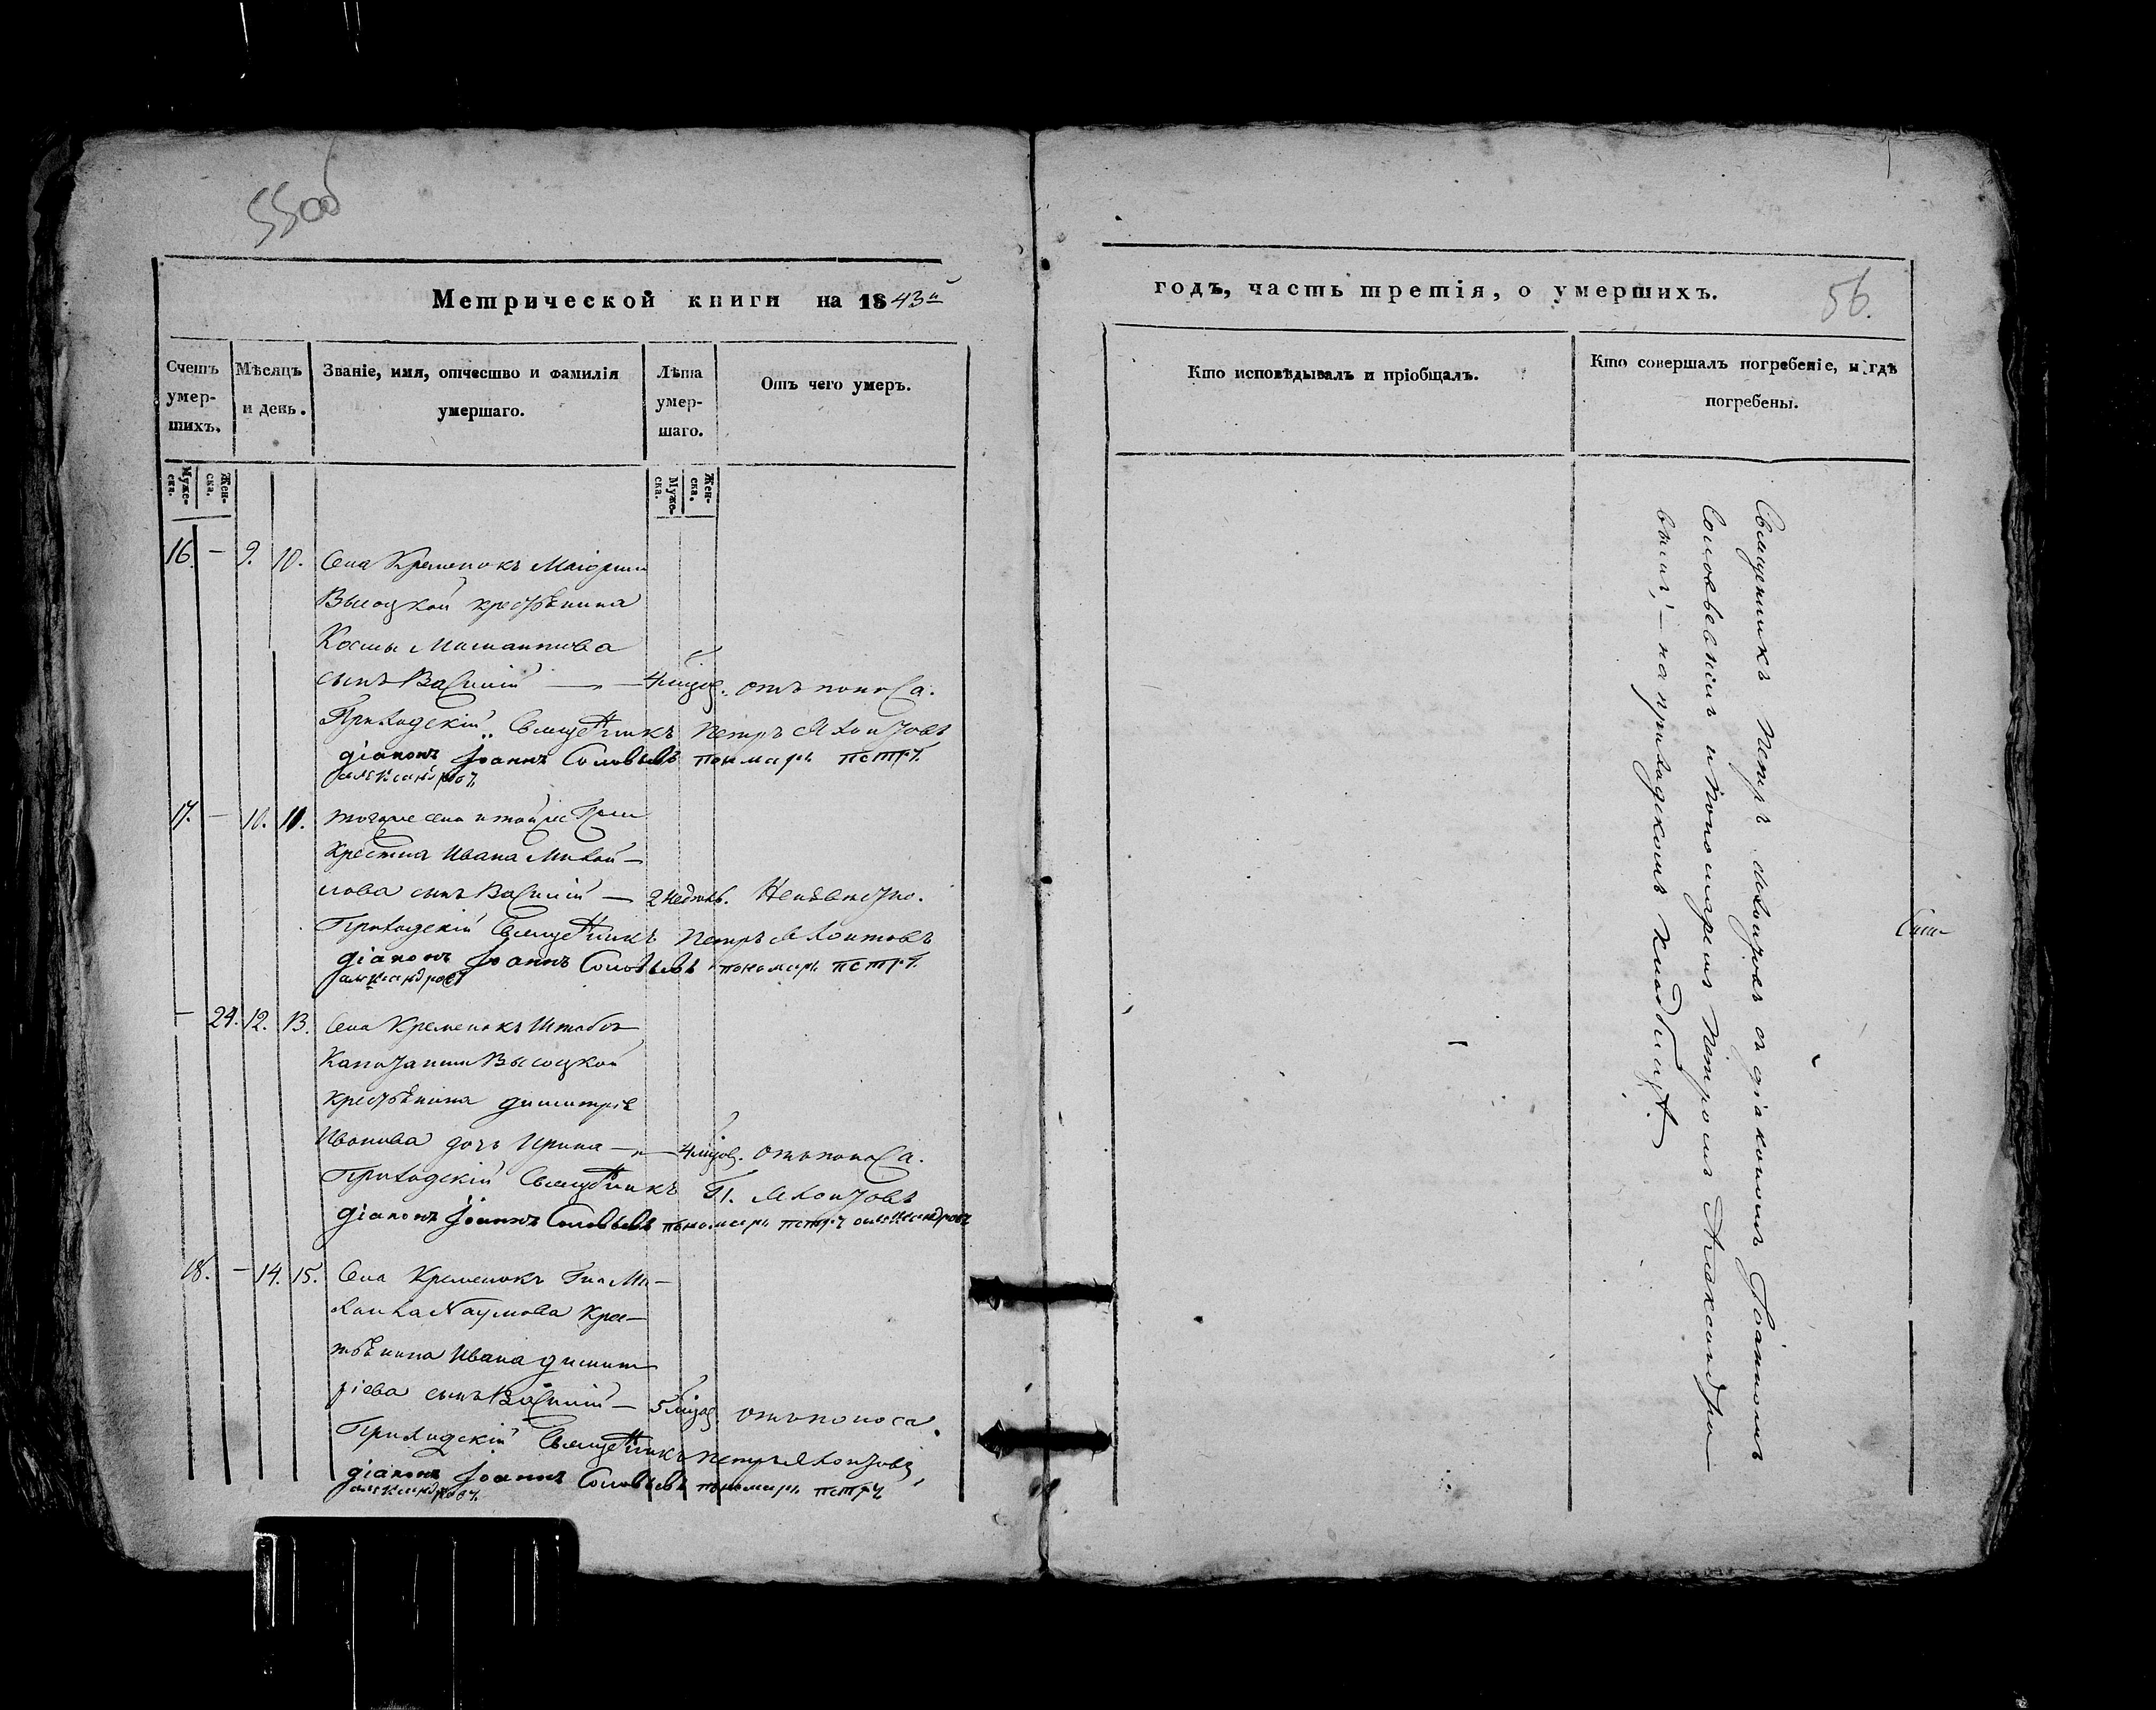 55об
Метрической книги на 1843й
Счетъ умер-шихъ.
Мѣсяцъ и день.
Званіе, имя, отчество и фамилія умершаго.
Лѣта умер-шаго.
Отъ чего умеръ.
Муже-ска.
Жен-ска.
Муже-ска.
Жен-ска.
16. — 9. 10. Села Кременокъ Маіорши
Высоцкой крестьянина
Космы
сынъ Василій — 4 мѣсяц. отъ поноса.
Приходскій Священникъ Петръ
діаконъ Іоаннъ Соловьевъ пономарь петръ
александровъ
17. — 10. 11. тогоже села и тойже Гжи
крестна Ивана Михай—
лова сынъ Василій — 2 недѣль. Неизвестно.
Приходскій Священникъ Петръ
діаконъ Іоаннъ Соловьевъ пономарь петръ
александровъ
— 24. 12. 13. Села Кременокъ Штабсъ
Капитанши Высоцкой
крестьянина димитрія
Иванова дочь Ирина — 4 мѣсяц. отъ поноса.
Приходскій Священникъ П.
діаконъ Іоаннъ Соловьевъ пономарь петръ александровъ
18. — 14. 15. Села Кременокъ Гна Ми—
хаила Наумова кре—
стьянина Ивана димит
ріева сынъ Василій — 5 мѣсяц. отъ поноса.
Приходскій Священникъ Петръ
діаконъ Іоаннъ Соловьевъ пономарь петръ
александровъ
годъ, часть третія, о умершихъ.
56.
Кто исповѣдывалъ и пріобщалъ.
Кто совершалъ погребеніе, и гдѣ погребены.
Священникъ Петръ съ діакономъ Іоанномъ
Соловьевымъ и Пономаремъ Петромъ Александро—
вымъ, — на приходскомъ кладбищѣ.